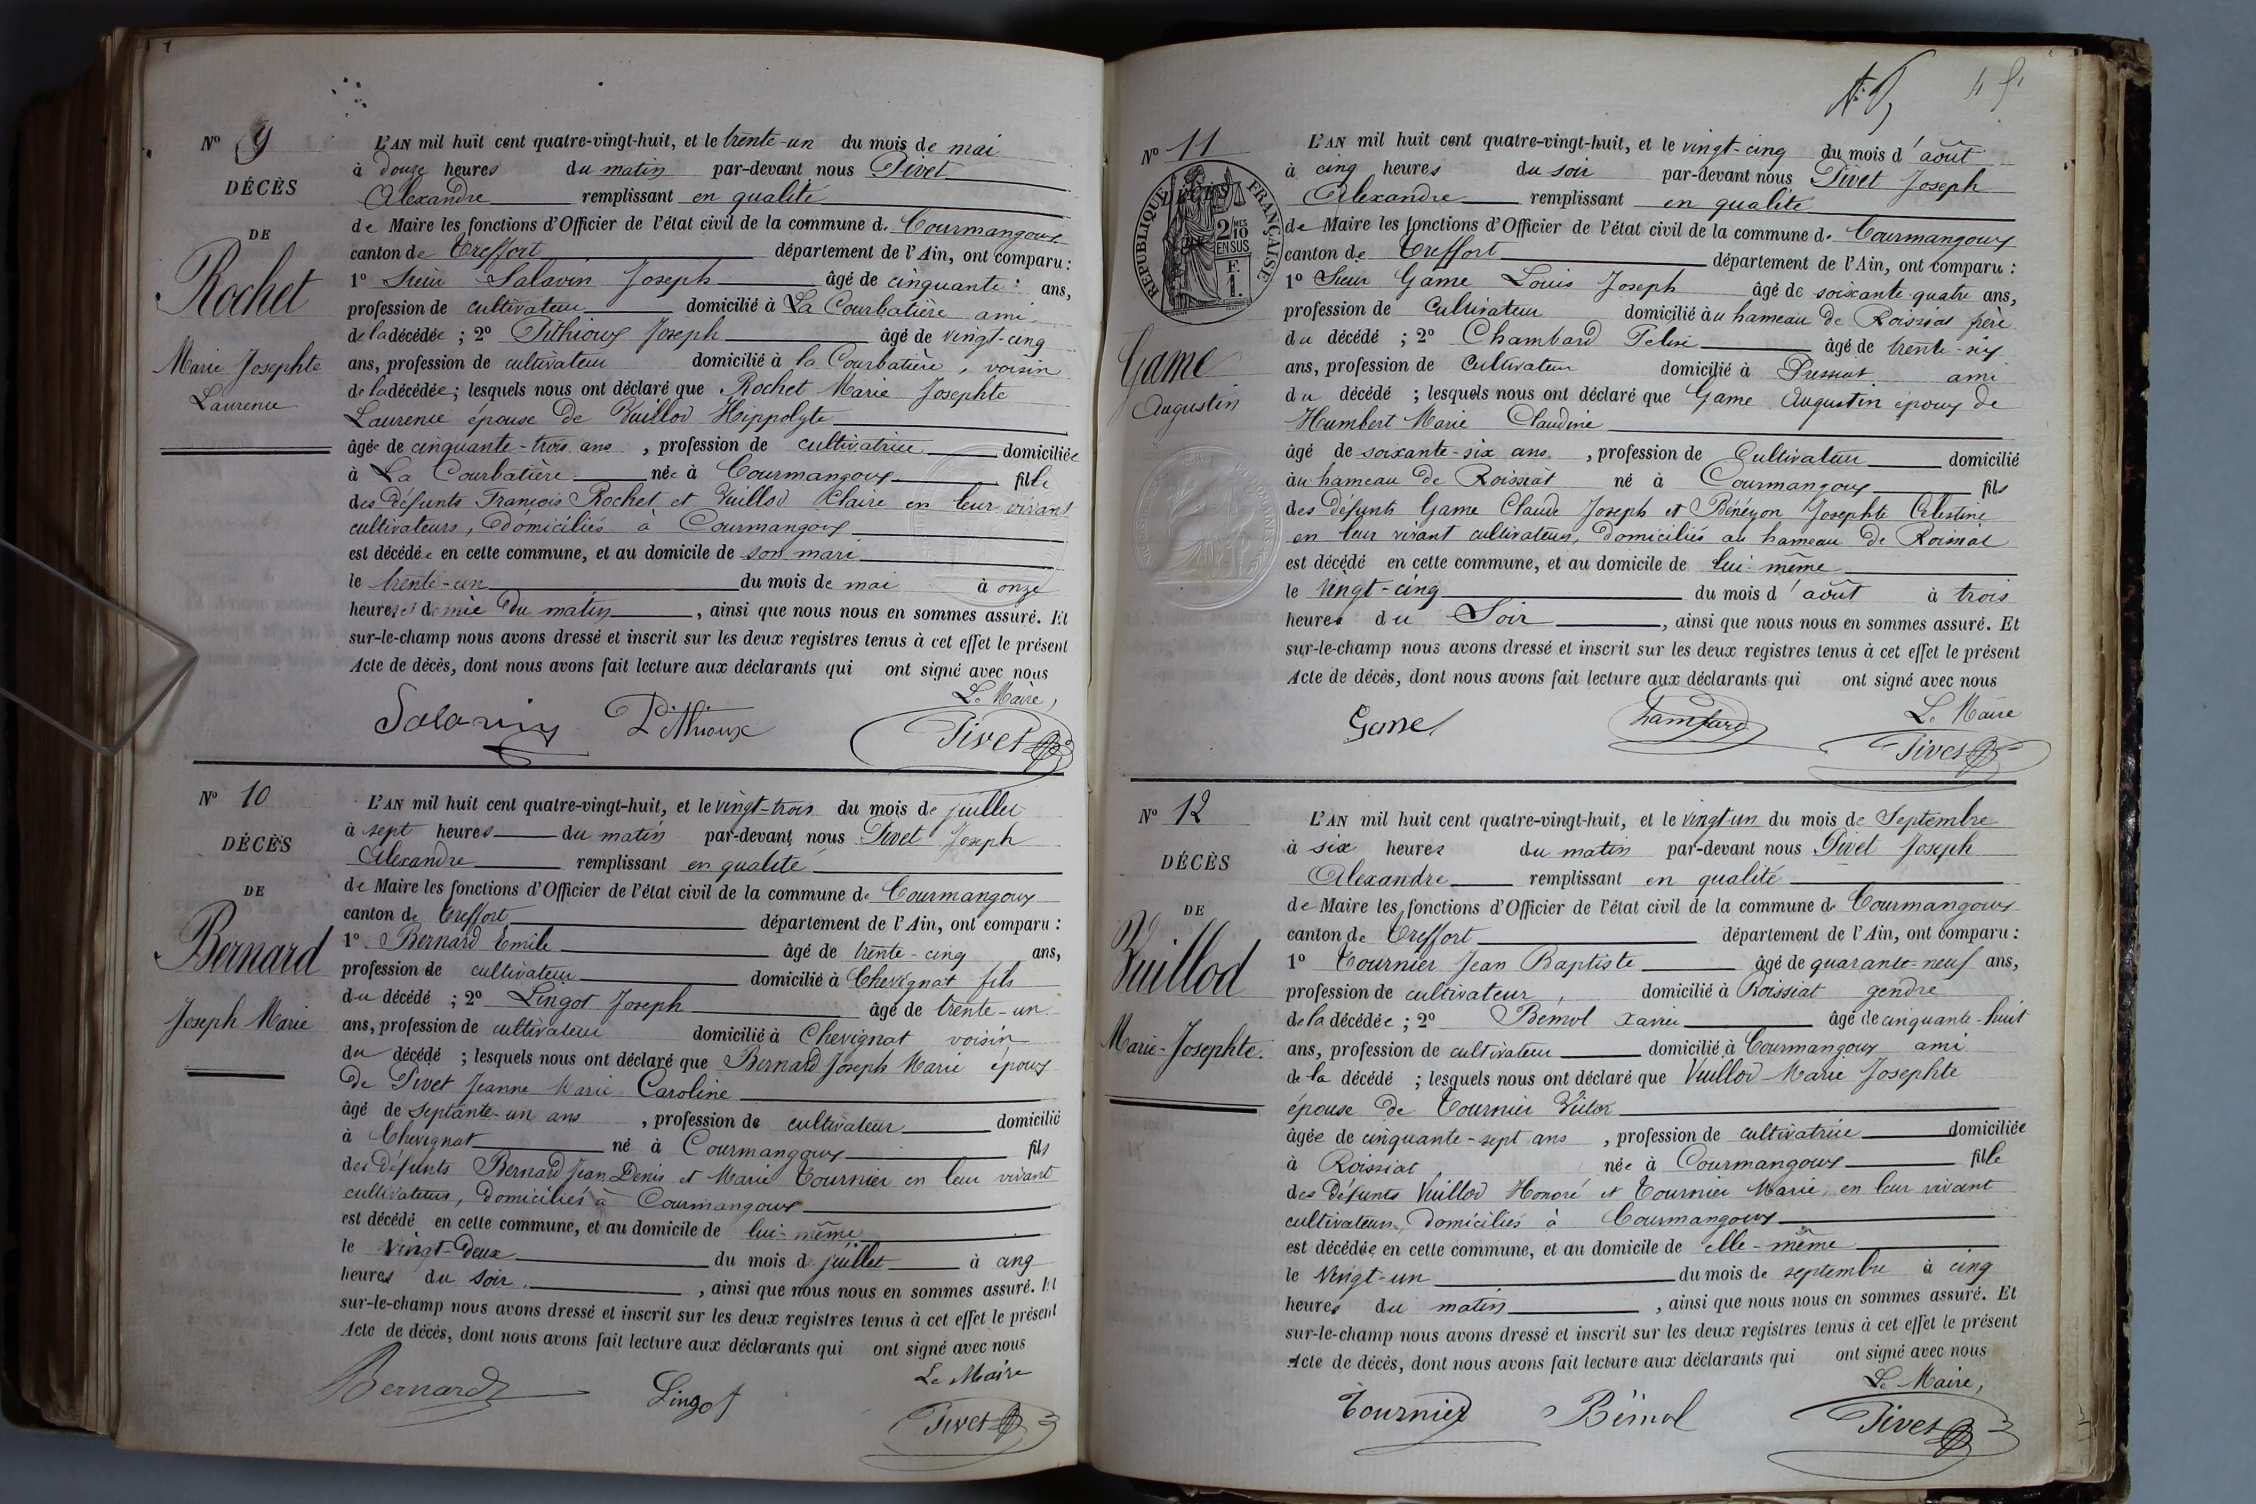 Nº 9
DÉCÈS
DE
Rochet
Marie Josephte
Laurence
L'AN mil huit cent quatre-vingt-huit, et le trente-un du mois de mai
à douze heures du matin par-devant nous Pivet
Alexandre remplissant en qualité
de Maire les fonctions d'Officier de l'état civil de la commune de Courmangoux
canton de Treffort département de l'Ain, ont comparu :
1º Sieur Salavin Joseph âgé de cinquante ans,
profession de cultivateur domicilié à La Courbatière ami
de la décédée ; 2º Pithioux Joseph âgé de vingt-cinq
ans, profession de cultivateur domicilié à la Courbatière, voisin
de la décédée ; lesquels nous ont déclaré que Rochet Marie Josephte
Laurence épouse de Vuillod Hippolyte
âgée de cinquante-trois ans, profession de cultivatrice domiciliée
à La Courbatière née à Courmangoux fille
des défunts François Rochet et Vuillod Claire en leur vivant
cultivateurs, domiciliés à Courmangoux
est décédée en cette commune, et au domicile de son mari
le trente-un du mois de mai à onze
heures et demie du matin, ainsi que nous nous en sommes assuré. Et
sur-le-champ nous avons dressé et inscrit sur les deux registres tenus à cet effet le présent
Acte de décès, dont nous avons fait lecture aux déclarants qui ont signé avec nous
Le Maire,
Salavin Pithioux Pivet
Nº 10
DÉCÈS
DE
Bernard
Joseph Marie
L'AN mil huit cent quatre-vingt-huit, et le vingt-trois du mois de juillet
à sept heures du matin par-devant nous Pivet Joseph
Alexandre remplissant en qualité
de Maire les fonctions d'Officier de l'état civil de la commune de Courmangoux
canton de Treffort département de l'Ain, ont comparu :
1º Bernard Emile âgé de trente-cinq ans,
profession de cultivateur domicilié à Chevignat fils
du décédé ; 2º Lingot Joseph âgé de trente-un
ans, profession de cultivateur domicilié à Chevignat voisin
du décédé ; lesquels nous ont déclaré que Bernard Joseph Marie époux
de Pivet Jeanne Marie Caroline
âgé de septante-un ans, profession de cultivateur domicilié
à Chevignat né à Courmangoux fils
des défunts Bernard Jean Denis et Marie Tournier en leur vivant
cultivateurs, domiciliés à Courmangoux
est décédé en cette commune, et au domicile de lui-même
le vingt-deux du mois de juillet à cinq
heures du soir, ainsi que nous nous en sommes assuré. Et
sur-le-champ nous avons dressé et inscrit sur les deux registres tenus à cet effet le présent
Acte de décès, dont nous avons fait lecture aux déclarants qui ont signé avec nous
Le Maire
Bernard Lingot Pivet
Nº 11
DÉCÈS
RÉPUBLIQUE FRANÇAISE
2/10 EN SUS
F. 1.
Game
Augustin
L'AN mil huit cent quatre-vingt-huit, et le vingt-cinq du mois d'août
à cinq heures du soir par-devant nous Pivet Joseph
Alexandre remplissant en qualité
de Maire les fonctions d'Officier de l'état civil de la commune de Courmangoux
canton de Treffort département de l'Ain, ont comparu :
1º Sieur Game Louis Joseph âgé de soixante quatre ans,
profession de Cultivateur domicilié au hameau de Roissiat frère
du décédé ; 2º Chambard âgé de trente-six
ans, profession de Cultivateur domicilié à Pressiat ami
du décédé ; lesquels nous ont déclaré que Game Augustin époux de
Humbert Marie Claudine
âgé de soixante-six ans, profession de Cultivateur domicilié
au hameau de Roissiat né à Courmangoux fils
des défunts Game Claude Joseph et Bénéyon Josephte Célestine
en leur vivant cultivateurs, domiciliés au hameau de Roissiat
est décédé en cette commune, et au domicile de lui-même
le vingt-cinq du mois d'août à trois
heures du Soir, ainsi que nous nous en sommes assuré. Et
sur-le-champ nous avons dressé et inscrit sur les deux registres tenus à cet effet le présent
Acte de décès, dont nous avons fait lecture aux déclarants qui ont signé avec nous
Le Maire
Game Chambard Pivet
Nº 12
DÉCÈS
DE
Vuillod
Marie-Josephte.
L'AN mil huit cent quatre-vingt-huit, et le vingt-un du mois de Septembre
à six heures du matin par-devant nous Pivet Joseph
Alexandre remplissant en qualité
de Maire les fonctions d'Officier de l'état civil de la commune de Courmangoux
canton de Treffort département de l'Ain, ont comparu :
1º Tournier Jean Baptiste âgé de quarante-neuf ans,
profession de cultivateur, domicilié à Roissiat gendre
de la décédée ; 2º Bemol Xavier âgé de cinquante-huit
ans, profession de cultivateur domicilié à Courmangoux ami
de la décédé ; lesquels nous ont déclaré que Vuillod Marie Josephte
épouse de Tournier Victor
âgée de cinquante-sept ans, profession de cultivatrice domiciliée
à Roissiat née à Courmangoux fille
des défunts Vuillod Honoré et Tournier Marie, en leur vivant
cultivateurs, domiciliés à Courmangoux
est décédée en cette commune, et au domicile de elle-même
le vingt-un du mois de septembre à cinq
heures du matin, ainsi que nous nous en sommes assuré. Et
sur-le-champ nous avons dressé et inscrit sur les deux registres tenus à cet effet le présent
Acte de décès, dont nous avons fait lecture aux déclarants qui ont signé avec nous
Le Maire,
Tournier Bémol Pivet